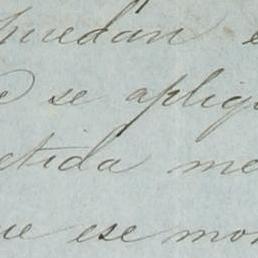 puedan e
se aplig
etida me
ue ese mon